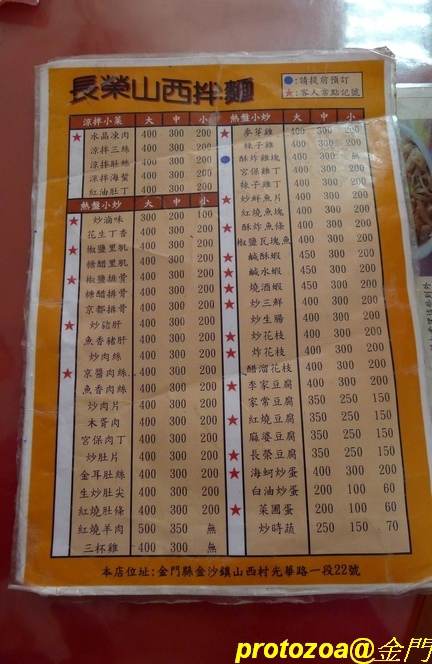 長榮山西拌麵
●:請提前預訂
★:客人常點記號
涼拌小菜 大 中 小
★ 水晶凍肉 400 300 200
涼拌三絲 400 300 200
涼拌肚絲 400 300 200
涼拌海蜇 400 300 200
紅油肚丁 400 300 200
熱盤小炒 大 中 小
★ 炒滷味 300 200 100
花生丁香 400 300 200
★ 椒鹽里肌 400 300 200
糖醋里肌 400 300 200
★ 椒鹽排骨 400 300 200
糖醋排骨 400 300 200
京都排骨 400 300 200
★ 炒豬肝 400 300 200
魚香豬肝 400 300 200
炒肉絲 400 300 200
★ 京醬肉絲 400 300 200
魚香肉絲 400 300 200
炒肉片 400 300 200
木胥肉 400 300 200
宮保肉丁 400 300 200
炒肚片 400 300 200
金耳肚絲 400 300 200
生炒肚尖 400 300 200
紅燒肚條 400 300 200
紅燒羊肉 500 350 無
三杯雞 400 300 無
熱盤小炒 大 中 小
★ 麥芽雞 400 300 200
辣子雞 400 300 200
● 酥炸雞塊 400 300 無
宮保雞丁 400 300 200
辣子雞丁 400 300 200
★ 炒鮮魚片 400 300 200
紅燒魚塊 400 300 200
★ 酥炸魚條 400 300 200
椒鹽瓦塊魚 400 300 200
★ 鹹酥蝦 450 300 200
★ 鹹水蝦 450 300 200
★ 燒酒蝦 450 300 200
★ 炒三鮮 400 300 200
炒生腸 400 300 200
★ 炒花枝 400 300 200
★ 炸花枝 400 300 200
醋溜花枝 400 300 200
★ 李家豆腐 400 300 200
家常豆腐 350 250 150
★ 紅燒豆腐 350 250 150
麻婆豆腐 350 250 150
★ 長榮豆腐 350 250 150
★ 海蚵炒蛋 400 300 200
白油炒蛋 200 100 60
★ 菜圃蛋 200 100 60
炒時蔬 250 150 70
本店位址:金門縣金沙鎮山西村光華路一段22號
protozoa@金門